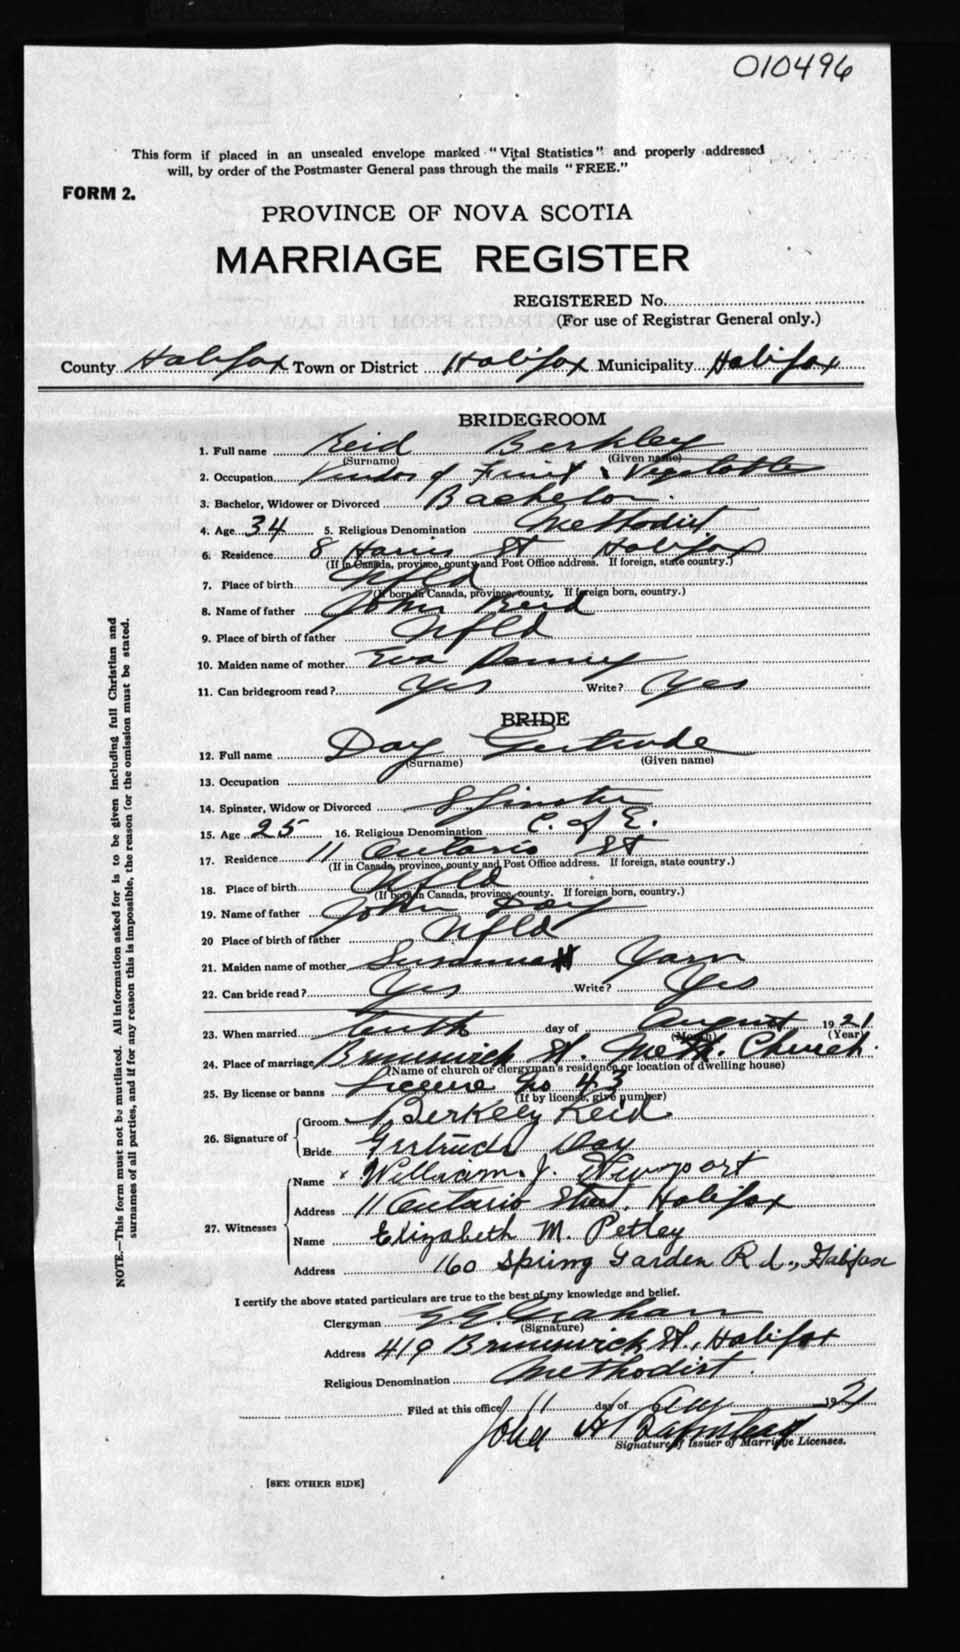 010496
This form if placed in an unsealed envelope marked "Vital Statistics" and properly addressed
will, by order of the Postmaster General pass through the mails "FREE."
FORM 2.
PROVINCE OF NOVA SCOTIA
MARRIAGE REGISTER
REGISTERED No.
(For use of Registrar General only.)
County Halifax Town or District Halifax Municipality Halifax
BRIDEGROOM
1. Full name Reid Berkley
(Surname) (Given name)
2. Occupation Vendor of Fruit & Vegetables
3. Bachelor, Widower or Divorced Bachelor.
4. Age 34 5. Religious Denomination Methodist
6. Residence 8 Harris St Halifax
(If in Canada, province, county and Post Office address. If foreign, state country.)
7. Place of birth Nfld
(If born in Canada, province, county. If foreign born, country.)
8. Name of father John Reid
9. Place of birth of father Nfld
10. Maiden name of mother Eva
11. Can bridegroom read? Yes Write? Yes
BRIDE
12. Full name Day Gertrude
(Surname) (Given name)
13. Occupation
14. Spinster, Widow or Divorced Spinster
15. Age 25 16. Religious Denomination C. of E.
17. Residence 11 Ontario St
(If in Canada, province, county and Post Office address. If foreign, state country.)
18. Place of birth Nfld
(If born in Canada, province, county. If foreign born, country.)
19. Name of father John Day
20 Place of birth of father Nfld
21. Maiden name of mother Susannah Yarn
22. Can bride read? Yes Write? Yes
23. When married tenth day of August 1921
(Month) (Year)
24. Place of marriage Brunswick St. Meth. Church.
(Name of church or clergyman's residence or location of dwelling house)
25. By license or banns License No 43
(If by license, give number)
26. Signature of
Groom Berkley Reid
Bride Gertrude Day
27. Witnesses
Name William J. Newport
Address 11 Ontario Street, Halifax
Name Elizabeth M. Petley
Address 160 Spring Garden Rd., Halifax
I certify the above stated particulars are true to the best of my knowledge and belief.
Clergyman Graham
(Signature)
Address 419 Brunswick St., Halifax
Religious Denomination Methodist.
Filed at this office 11 day of Aug 1921
John H
Signature of Issuer of Marriage Licenses.
[SEE OTHER SIDE]
NOTE.—This form must not be mutilated. All information asked for is to be given including full Christian and
surnames of all parties, and if for any reason this is impossible, the reason for the omission must be stated.